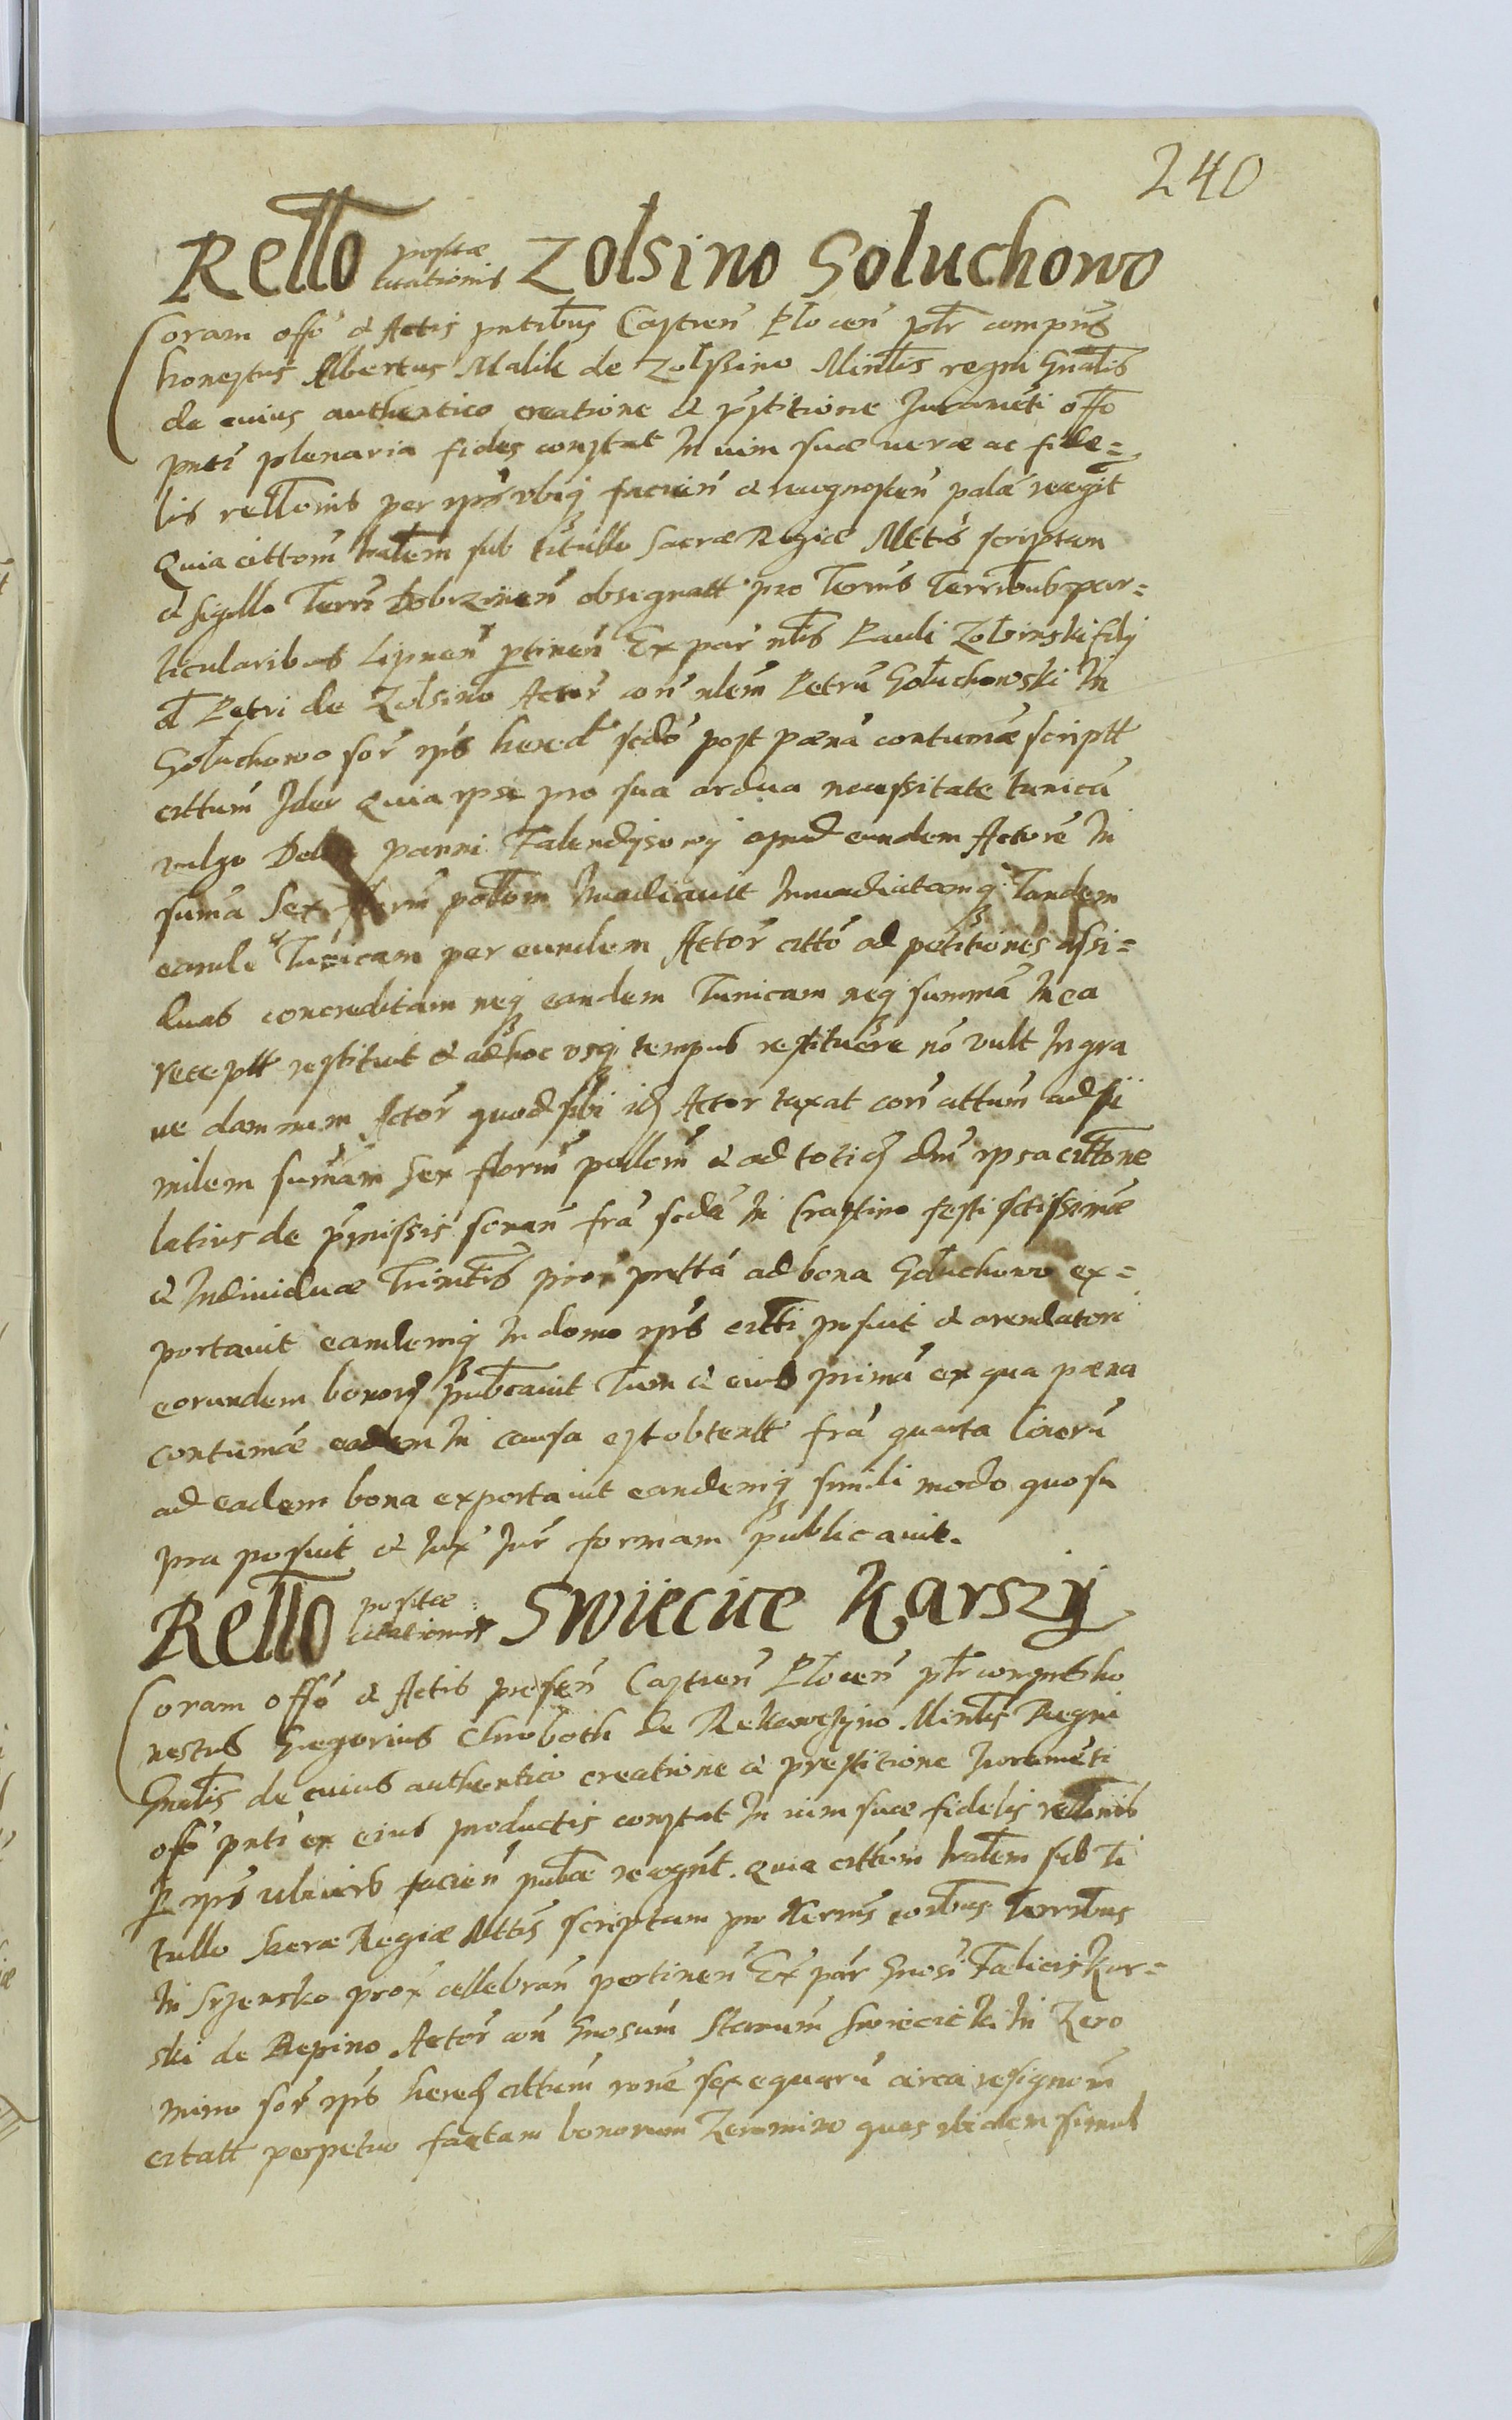 240
Rello positae citationis Zolsino Goluchowo
Coram offo et Actis pntibus Castren Plocen pltr compns
honestus Albertus Malik de Zolssino Mintlis regni Gnalis
de cuius authentico creatione et pstitione Juramēti offo
pnti plenaria fides constat In uim suae uerae ac fide=
lis rellonis per ips ubiq facien et recognoscen palā recogt
Quia cittom lralem sub titullo Sacrae Regiae Mttis scriptam
et sigillo Terrs Dobrzinen obsignatt pro Termis Terrtribus par=
ticularibus Lipnen ptinen Ex par nlis Pauli Zolsinski filij
d Petri de Zolsino Actor con nlem Petrū Goluchowski In
Goluchowo sor ips hered scdo post paenā contumae scriptt
cittum Ideo Quia ipse pro sua ardua necessitate tunicā
vulgo panni Falendisowj apud eundem Actorē In
sumā Sex florm pollom Inuadiauit Inuadiatamq Tandem
eande Tunicam per eundem Actor citto ad petitiones assi=
duas concreditam neq eandem Tunicam neq summā In ea
receptt restituit et ad hoc usq tempus restituere nō vult In gra
ue damnum Actor quod sibi id Actor taxat con cittum ad si
milem sumam Sex florm pollom et ad totid dm ipsa cittone
latius de pmissis sonan frā scdā In Crastino festi sctissimae
et Indiuiduae Trinitis prox prettā ad bona Goluchowo ex=
portauit eandemq In domo ips citti posuit et arendatori
eorundem bonor publcauit Tum et eius primā ex qua paena
contumae eadem In causa est obtentt frā quarta Cinerū
ad eadem bona exportauit eandemq simili modo quo su
pra posuit et Iux Iur formam publicauit.
Rello positae citationis Swiecice Karszij
Coram offo et Actis presen Castren Plocen pltr compns ho
nestus Gregorius Chroboth de Rekawczyno Mintlis Regni
Gnalis de cuius authentico creatione et prestitione Iuramēti
offo pnti ex eius productis constat In uim suae fidelis rellonis
p ips ubiuis facien publce recognt. Quia cittom lralem sub ti
tullo Sacrae Regiae Mttis scriptam pro Termis coribus Terrtribus
In Srzensko prox cellebran pertinen Ex par Gnosi Faelicis Kar=
ski de Repino Actor con Gnosum Stanum Swiecicki In Zero
mino sor ips hered cittum rone sex equorū circa resignom
citatt perpetuo factam bonorum Zeromino quos ibidem simul